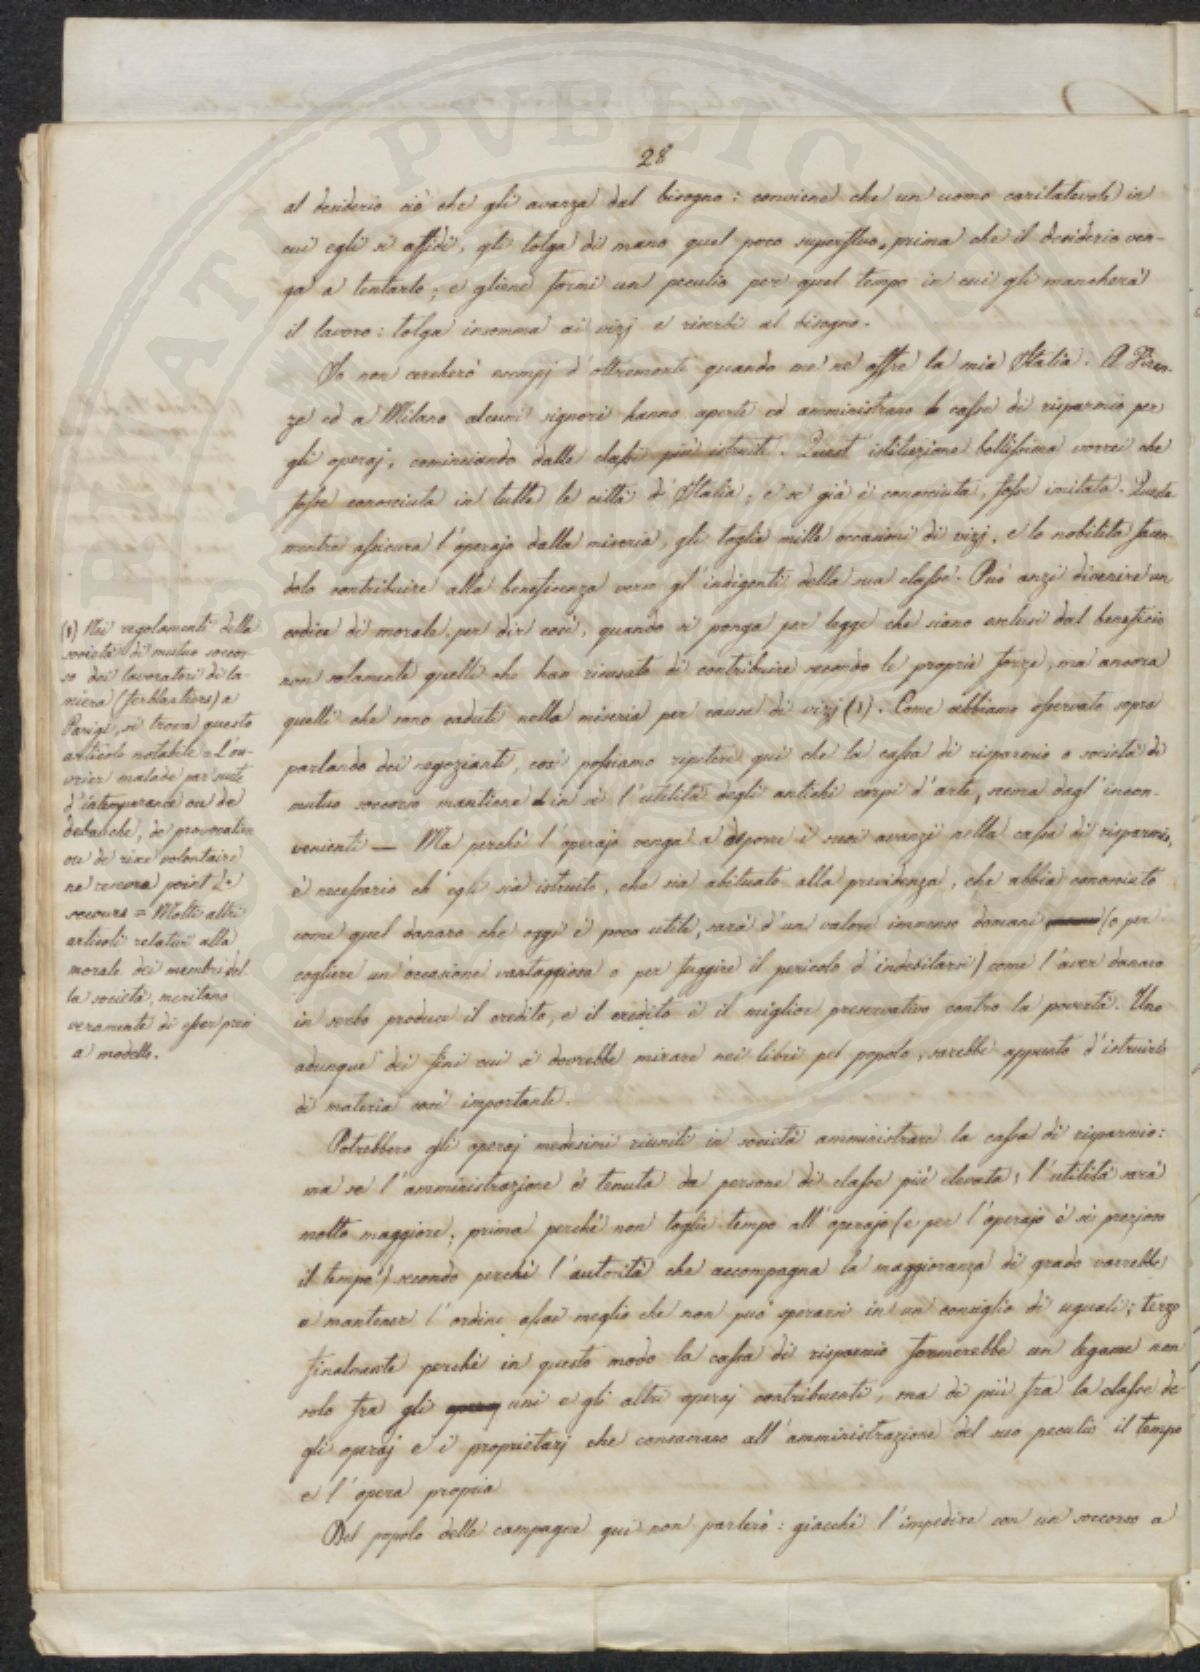 28
al desiderio ciò che gli avanza dal bisogno: conviene che un uomo caritatevole in
cui egli si affidi, gli tolga di mano quel poco superfluo, prima che il desiderio ven-
ga a tentarlo; e gliene formi un peculio per quel tempo in cui gli mancherà
il lavoro: tolga insomma ai vizj e riserbi al bisogno.
Io non cercherò esempj d'oltremonti quando me ne offre la mia Italia. A Firen-
ze ed a Milano alcuni signori hanno aperte ed amministrano le casse di risparmio per
gli operaj, cominciando dalle classi più istruite. Quest istituzione bellissima vorrei che
fosse conosciuta in tutte le città d'Italia, e se già è conosciuta, fosse imitata. Questa
mentre assicura l'operajo dalla miseria, gli toglie mille occasioni di vizj, e lo nobilita facen-
dolo contribuire alla beneficenza verso gl'indigenti della sua classe. Può anzi divenire un
codice di morale, per dir così, quando si ponga per legge che siano esclusi dal beneficio
non solamente quelli che han ricusato di contribuire secondo le proprie forze, ma ancora
quelli che sono caduti nella miseria per causa di vizj (1). Come abbiamo osservato sopra
parlando dei negozianti, così possiamo ripetere qui che la cassa di risparmio o società di
mutuo soccorso mantiene in sè l'utilità degli antichi corpi d'arte, scevra dagl'incon-
venienti — Ma perchè l'operajo venga a deporre i suoi avanzi nella cassa di risparmio,
è necessario ch'egli sia istruito, che sia abituato alla previdenza, che abbia conosciuto
come quel danaro che oggi è poco utile, sarà d'un valore immenso domani (o per
cogliere un'occasione vantaggiosa o per fuggire il pericolo d'indebitarsi) come l'aver danaro
in serbo produce il credito, e il credito è il miglior preservativo contro la povertà. Uno
adunque dei fini cui si dovrebbe mirare nei libri pel popolo, sarebbe appunto d'istruirlo
di materia così importante.
Potrebbero gli operaj medesimi riuniti in società amministrare la cassa di risparmio:
ma se l'amministrazione è tenuta da persone di classe più elevata, l'utilità sarà
molto maggiore; prima perchè non toglie tempo all'operajo (e per l'operajo è sì prezioso
il tempo!) secondo perchè l'autorità che accompagna la maggioranza di grado varrebbe
a mantener l'ordine assai meglio che non può sperarsi in un consiglio di uguali; terzo
finalmente perchè in questo modo la cassa di risparmio formerebbe un legame non
solo fra gli uni e gli altri operaj contribuenti, ma di più fra la classe de-
gli operaj e i proprietarj che consacrano all'amministrazione del suo peculio il tempo
e l'opera propria
Del popolo delle campagne qui non parlerò: giacchè l'impedire con un soccorso a
(1) Nei regolamenti della
società di mutuo soccor-
so dei lavoratori di la-
miera (ferblantiers) a
Parigi, si trova questo
articolo notabile = L'ou-
vrier malade par suite
d'intemperance ou de
debauche, de provocation
ou de rixe volontaire
ne recevra point de
secours = Molti altri
articoli relativi alla
morale dei membri del-
la società, meritano
veramente di esser presi
a modello.